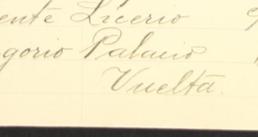 ente Lucerio
gorio Palacio
Vuelta.